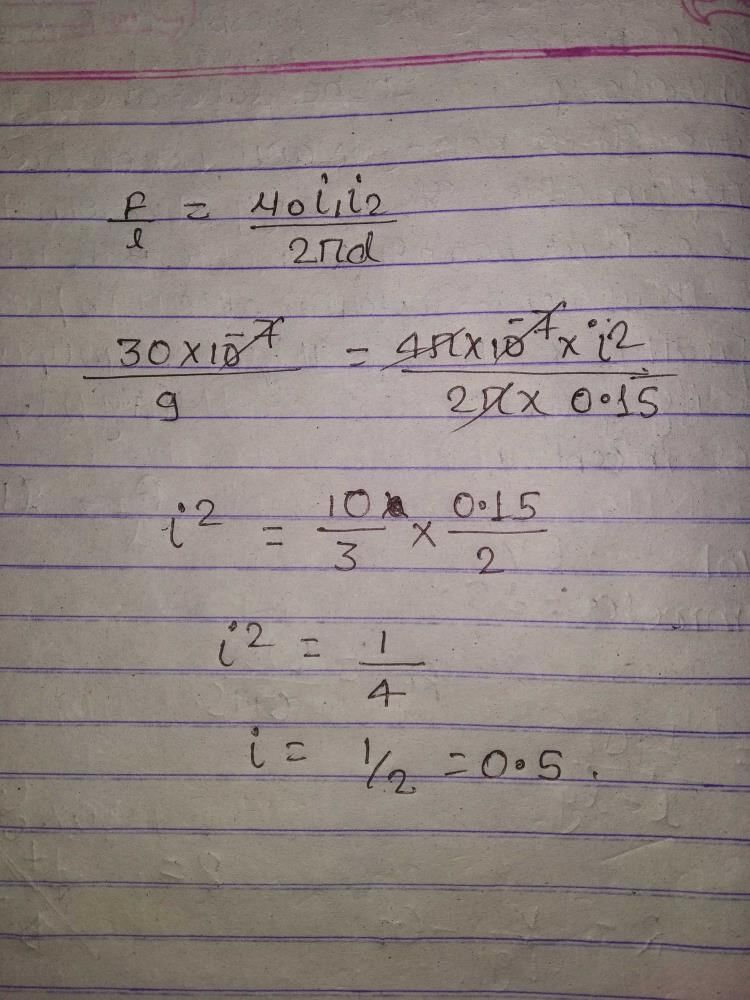 F/l = μ0i1i2/2πd
30×10^-7/9 = 4π×10^-7×i^2/2π× 0.15
i^2 = 10/3 × 0.15/2
i^2 = 1/4
i = 1/2 = 0.5.